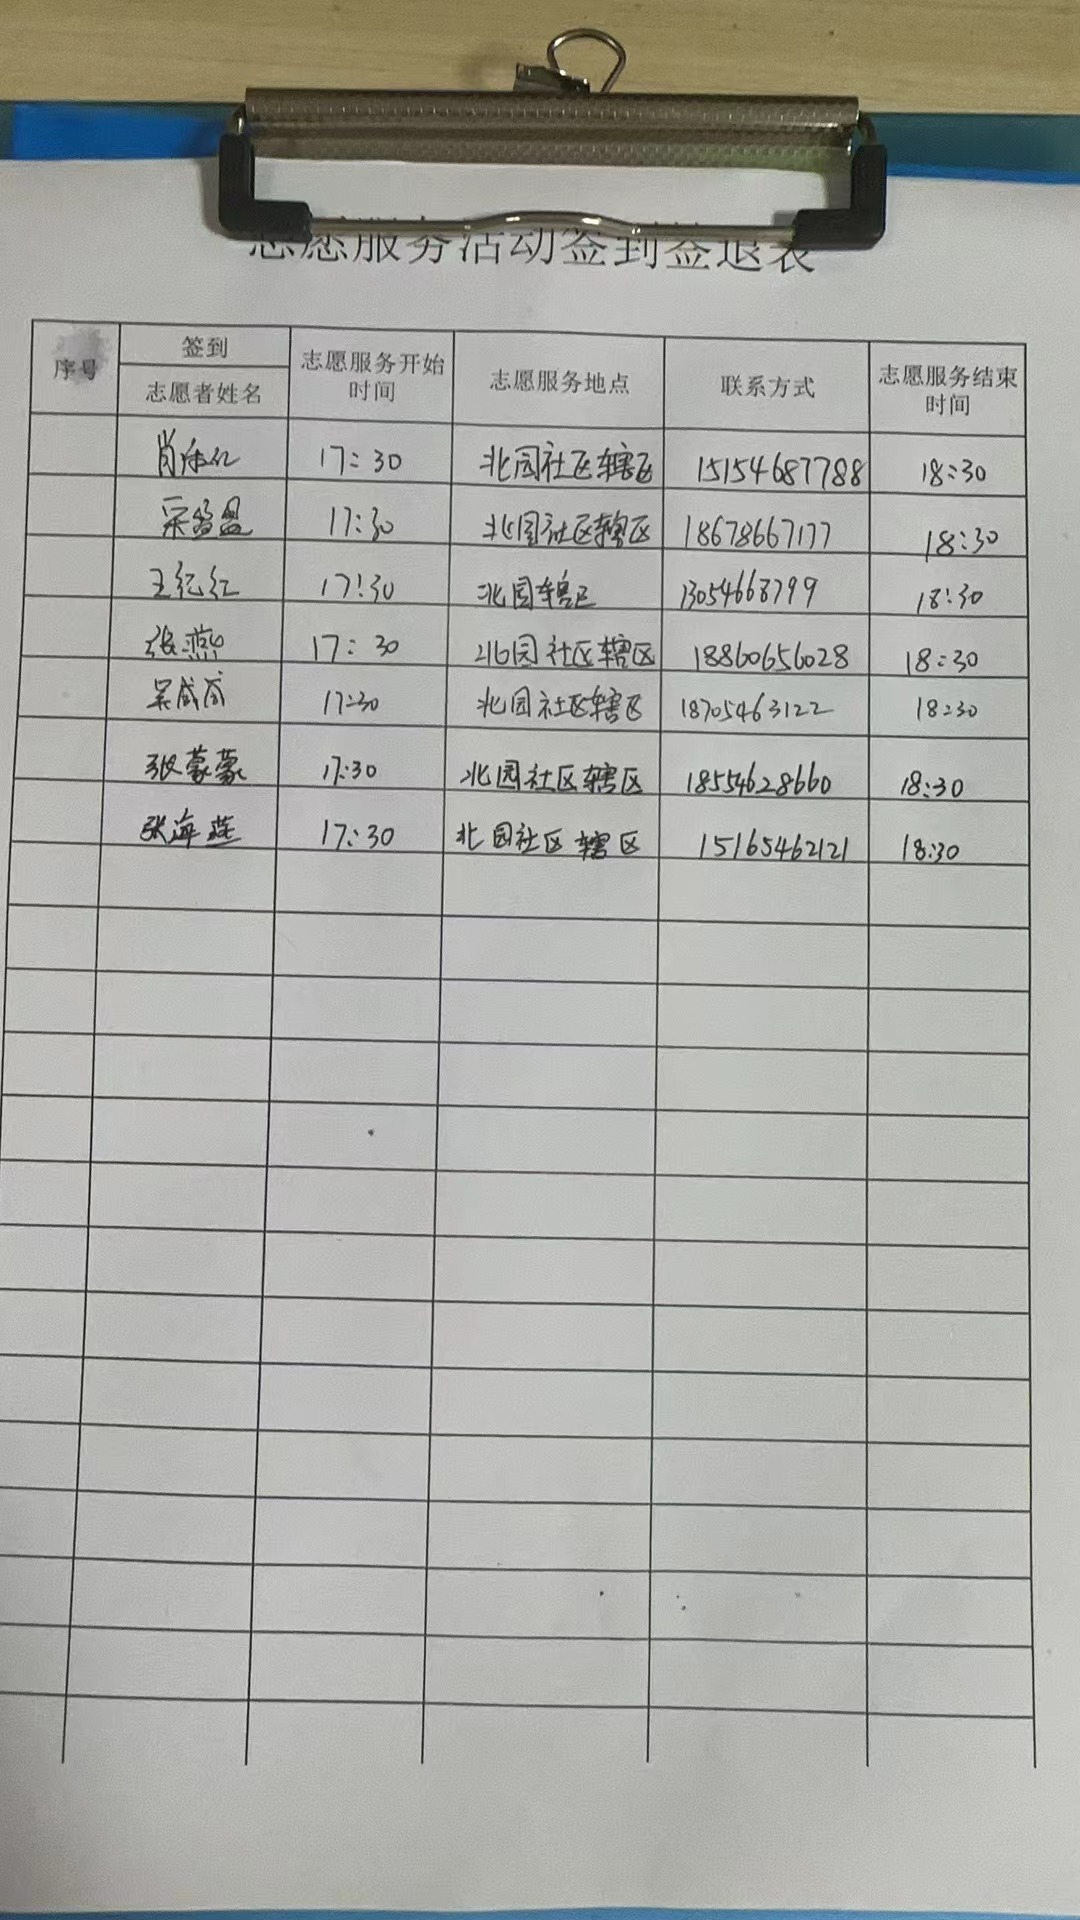 志愿服务活动签到签退表
序号 签到 志愿服务开始时间 志愿服务地点 联系方式 志愿服务结束时间
志愿者姓名
肖 17:30 北园社区辖区 15154687788 18:30
17:30 北园社区辖区 18678667177 18:30
王纪红 17:30 北园辖区 13054668799 18:30
张燕 17:30 北园社区辖区 18860656028 18:30
吴盛 17:30 北园社区辖区 18705463122 18:30
张蒙蒙 17:30 北园社区辖区 18554628660 18:30
张海燕 17:30 北园社区辖区 15165462121 18:30